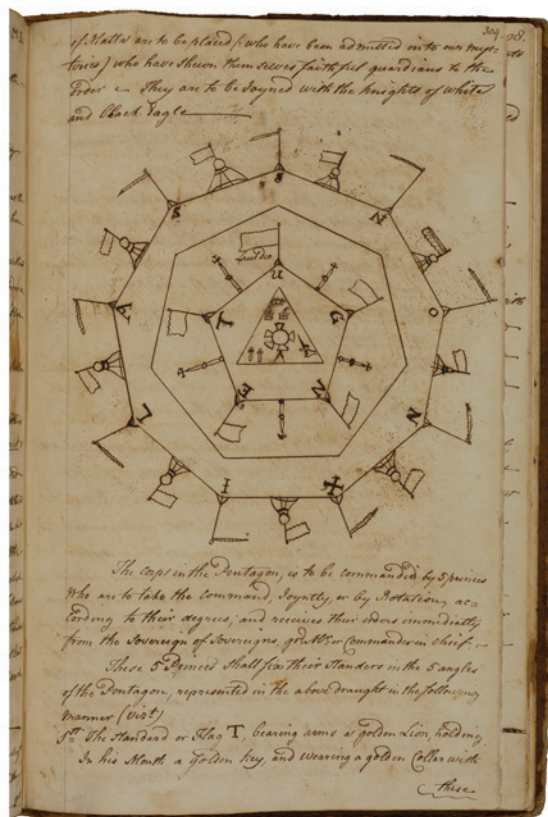 304
of Malta are to be placed (who have been admitted into our mys=
teries) who have shewn themselves faithful guardians to the
Order They are to be Joyned with the Knights of White
and Black Eagle
S
N
O
N
I
L
U
G
N
E
T
The corps in the Pentagon, is to be commanded by 5 princes
Who are to take the command, Joyntly, or by Rotation, ac=
cording to their degrees; and receives their orders immidiatly
from the Sovereign of Sovereigns, or Commander in chief.
These 5 Princes shall fix their Standers in the 5 angles
of the Pentagon, represented in the above draught in the following
manner (Vizt)
The Standard or Flag T, bearing arms a golden Lion, holding
In his Mouth a Golden Key, and wearing a golden Collar with
these